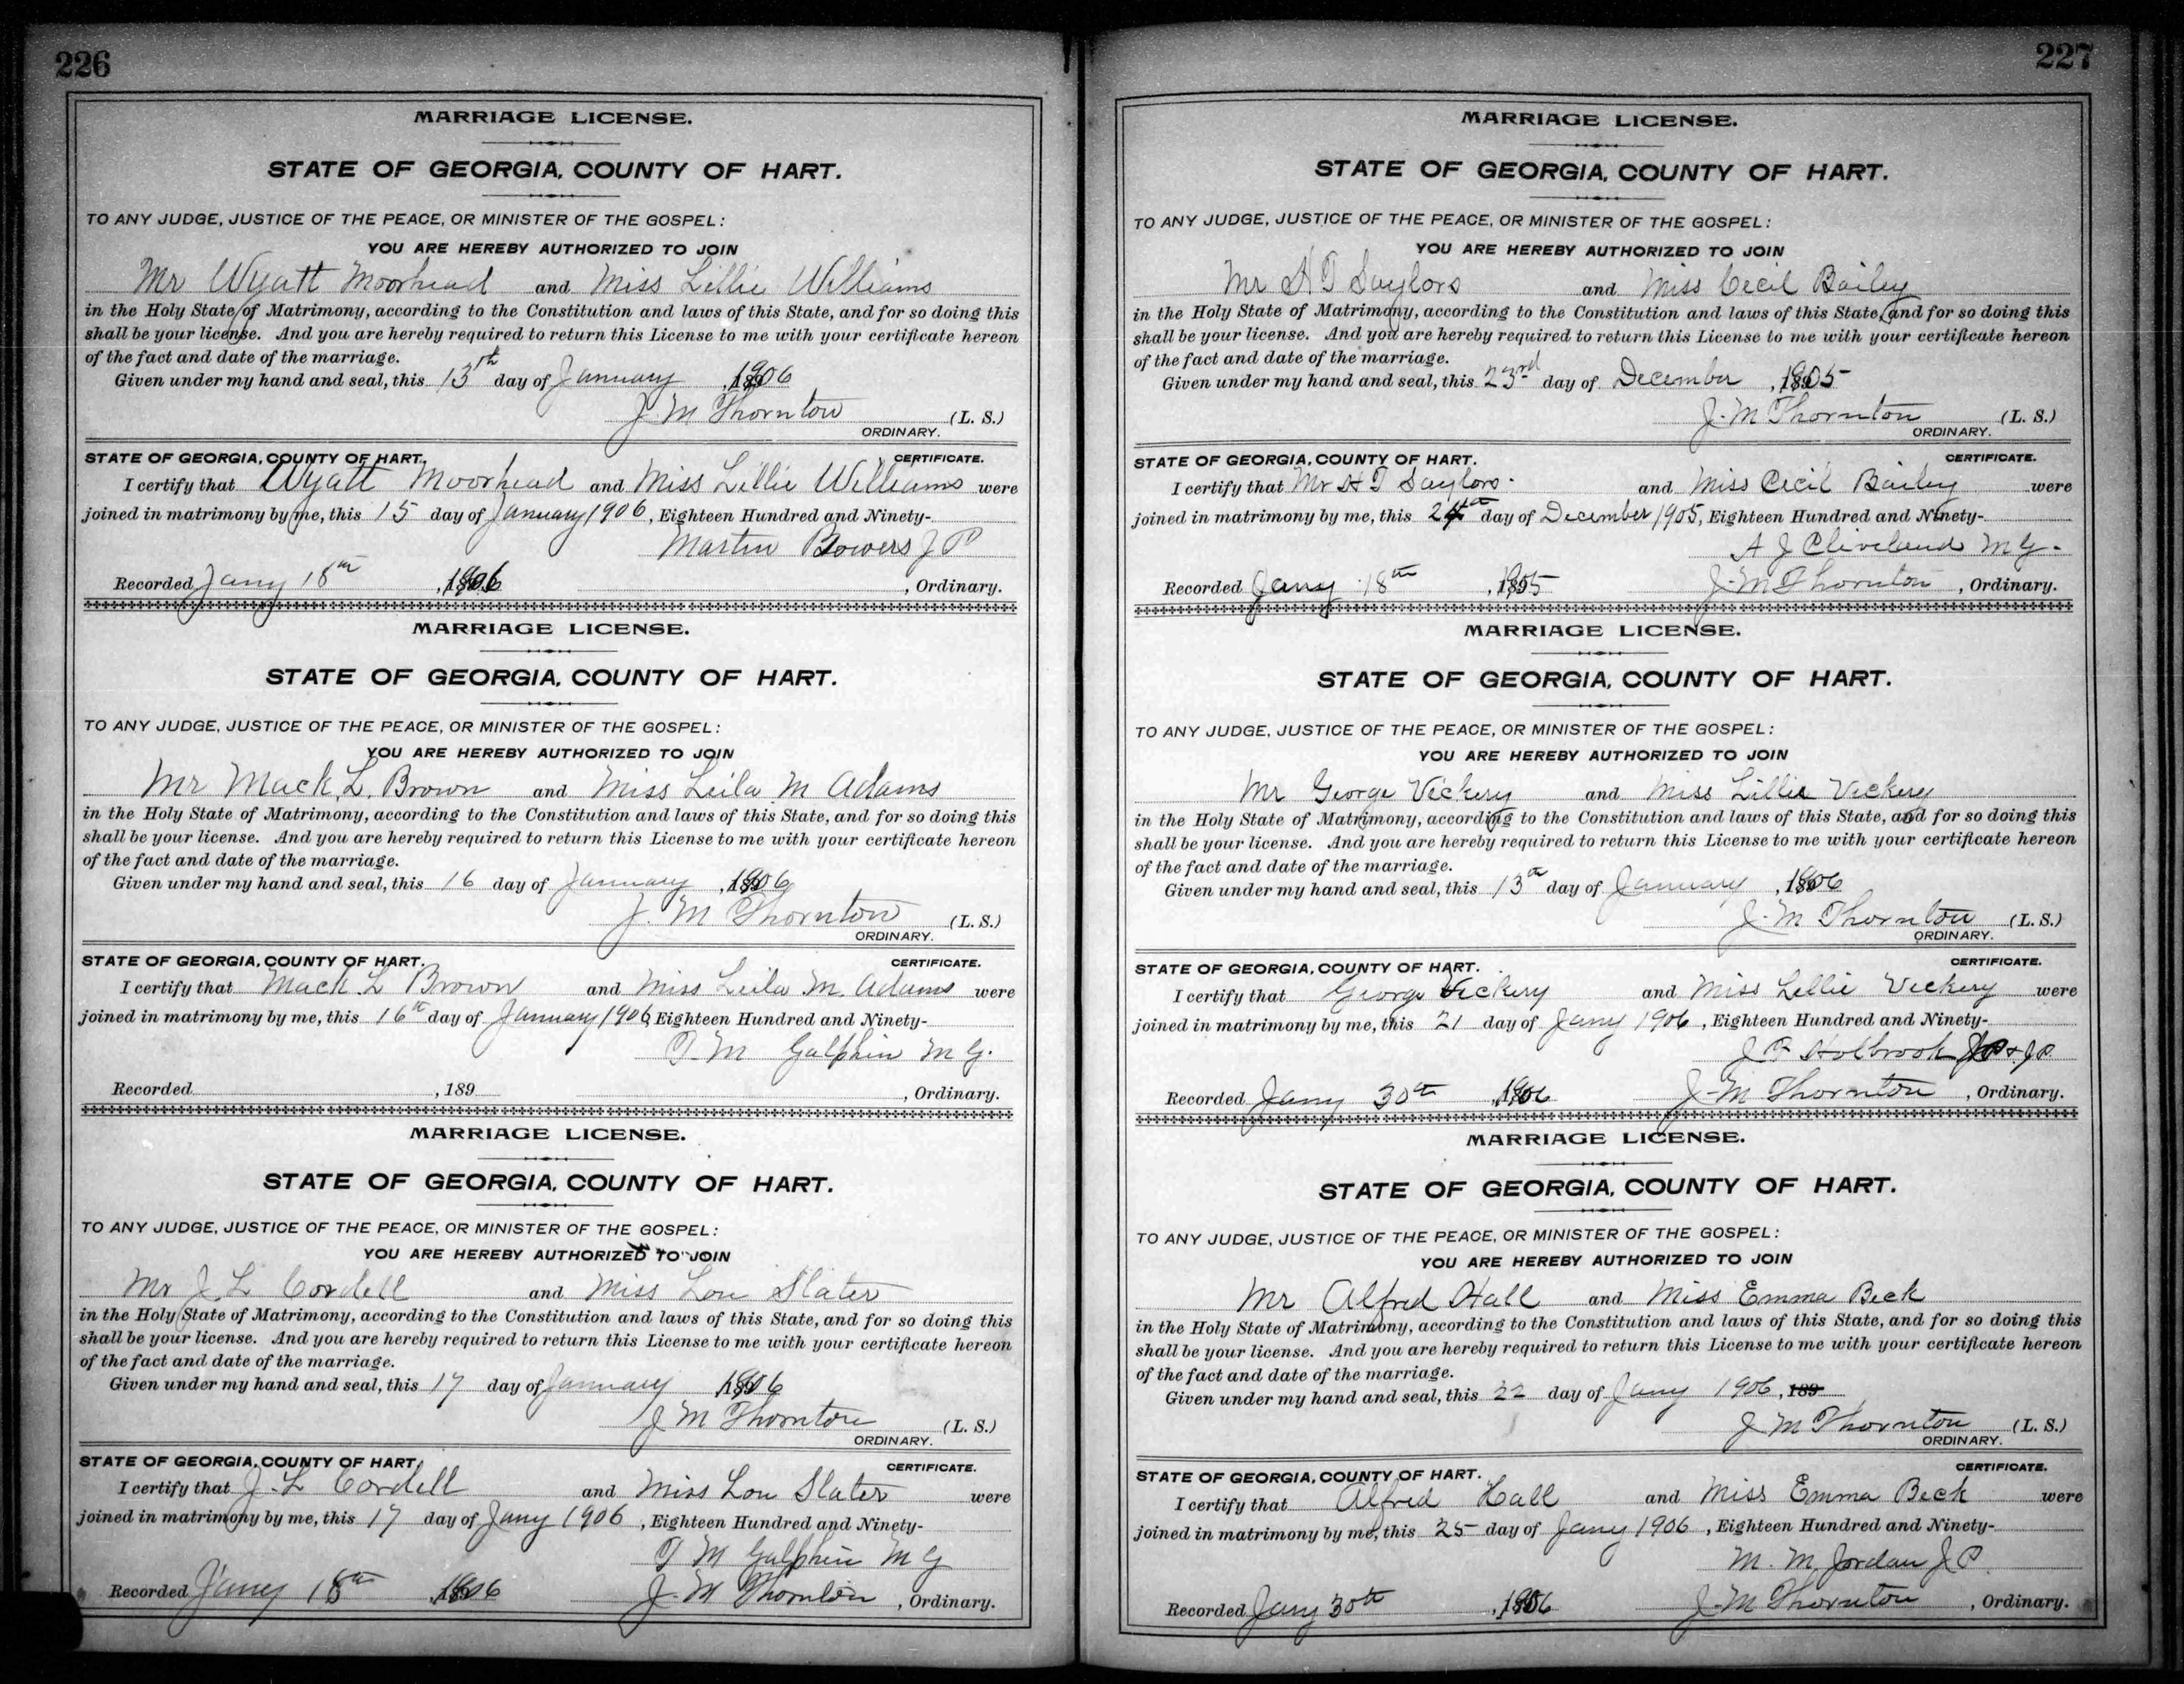 226
MARRIAGE LICENSE.
STATE OF GEORGIA, COUNTY OF HART.
TO ANY JUDGE, JUSTICE OF THE PEACE, OR MINISTER OF THE GOSPEL:
YOU ARE HEREBY AUTHORIZED TO JOIN
Mr Wyatt Moorhead and Miss Lillie Williams
in the Holy State of Matrimony, according to the Constitution and laws of this State, and for so doing this
shall be your license. And you are hereby required to return this License to me with your certificate hereon
of the fact and date of the marriage.
Given under my hand and seal, this 13th day of January, 1906
J. M Thornton (L. S.)
ORDINARY.
STATE OF GEORGIA, COUNTY OF HART. CERTIFICATE.
I certify that Wyatt Moorhead and Miss Lillie Williams were
joined in matrimony by me, this 15 day of January 1906, Eighteen Hundred and Ninety-
Martin Bowers J P
Recorded Jany 18th, 1906 , Ordinary.
MARRIAGE LICENSE.
STATE OF GEORGIA, COUNTY OF HART.
TO ANY JUDGE, JUSTICE OF THE PEACE, OR MINISTER OF THE GOSPEL:
YOU ARE HEREBY AUTHORIZED TO JOIN
Mr Mack L. Brown and Miss Leila M Adams
in the Holy State of Matrimony, according to the Constitution and laws of this State, and for so doing this
shall be your license. And you are hereby required to return this License to me with your certificate hereon
of the fact and date of the marriage.
Given under my hand and seal, this 16 day of January, 1906
J. M Thornton (L. S.)
ORDINARY.
STATE OF GEORGIA, COUNTY OF HART. CERTIFICATE.
I certify that Mack L Brown and Miss Leila M. Adams were
joined in matrimony by me, this 16th day of January 1906, Eighteen Hundred and Ninety-
T. M Galphin M G.
Recorded , 189 , Ordinary.
MARRIAGE LICENSE.
STATE OF GEORGIA, COUNTY OF HART.
TO ANY JUDGE, JUSTICE OF THE PEACE, OR MINISTER OF THE GOSPEL:
YOU ARE HEREBY AUTHORIZED TO JOIN
Mr J. L Cordell and Miss Lou Slater
in the Holy State of Matrimony, according to the Constitution and laws of this State, and for so doing this
shall be your license. And you are hereby required to return this License to me with your certificate hereon
of the fact and date of the marriage.
Given under my hand and seal, this 17 day of January 1906
J M Thornton (L. S.)
ORDINARY.
STATE OF GEORGIA, COUNTY OF HART. CERTIFICATE.
I certify that J. L Cordell and Miss Lou Slater were
joined in matrimony by me, this 17 day of Jany 1906, Eighteen Hundred and Ninety-
T M Galphin M G
Recorded Jany 18th, 1906 J. M Thornton, Ordinary.
227
MARRIAGE LICENSE.
STATE OF GEORGIA, COUNTY OF HART.
TO ANY JUDGE, JUSTICE OF THE PEACE, OR MINISTER OF THE GOSPEL:
YOU ARE HEREBY AUTHORIZED TO JOIN
Mr H T Saylors and Miss Cecil Bailey
in the Holy State of Matrimony, according to the Constitution and laws of this State, and for so doing this
shall be your license. And you are hereby required to return this License to me with your certificate hereon
of the fact and date of the marriage.
Given under my hand and seal, this 23rd day of December, 1905
J. M Thornton (L. S.)
ORDINARY.
STATE OF GEORGIA, COUNTY OF HART. CERTIFICATE.
I certify that Mr H T Saylors. and Miss Cecil Bailey were
joined in matrimony by me, this 24th day of December 1905, Eighteen Hundred and Ninety-
A J Cleveland M G.
Recorded Jany 18th, 1905 J. M Thornton, Ordinary.
MARRIAGE LICENSE.
STATE OF GEORGIA, COUNTY OF HART.
TO ANY JUDGE, JUSTICE OF THE PEACE, OR MINISTER OF THE GOSPEL:
YOU ARE HEREBY AUTHORIZED TO JOIN
Mr George Vickery and Miss Lillie Vickery
in the Holy State of Matrimony, according to the Constitution and laws of this State, and for so doing this
shall be your license. And you are hereby required to return this License to me with your certificate hereon
of the fact and date of the marriage.
Given under my hand and seal, this 13th day of January, 1906
J. M Thornton (L. S.)
ORDINARY.
STATE OF GEORGIA, COUNTY OF HART. CERTIFICATE.
I certify that George Vickery and Miss Lillie Vickery were
joined in matrimony by me, this 21 day of Jany 1906, Eighteen Hundred and Ninety-
J F Holbrook J.P.
Recorded Jany 30th, 1906 J. M Thornton, Ordinary.
MARRIAGE LICENSE.
STATE OF GEORGIA, COUNTY OF HART.
TO ANY JUDGE, JUSTICE OF THE PEACE, OR MINISTER OF THE GOSPEL:
YOU ARE HEREBY AUTHORIZED TO JOIN
Mr Alfred Hall and Miss Emma Beck
in the Holy State of Matrimony, according to the Constitution and laws of this State, and for so doing this
shall be your license. And you are hereby required to return this License to me with your certificate hereon
of the fact and date of the marriage.
Given under my hand and seal, this 22 day of Jany 1906, 189
J M Thornton (L. S.)
ORDINARY.
STATE OF GEORGIA, COUNTY OF HART. CERTIFICATE.
I certify that Alfred Hall and Miss Emma Beck were
joined in matrimony by me, this 25 day of Jany 1906, Eighteen Hundred and Ninety-
M. M. Jordan J P.
Recorded Jany 30th, 1906 J. M Thornton, Ordinary.